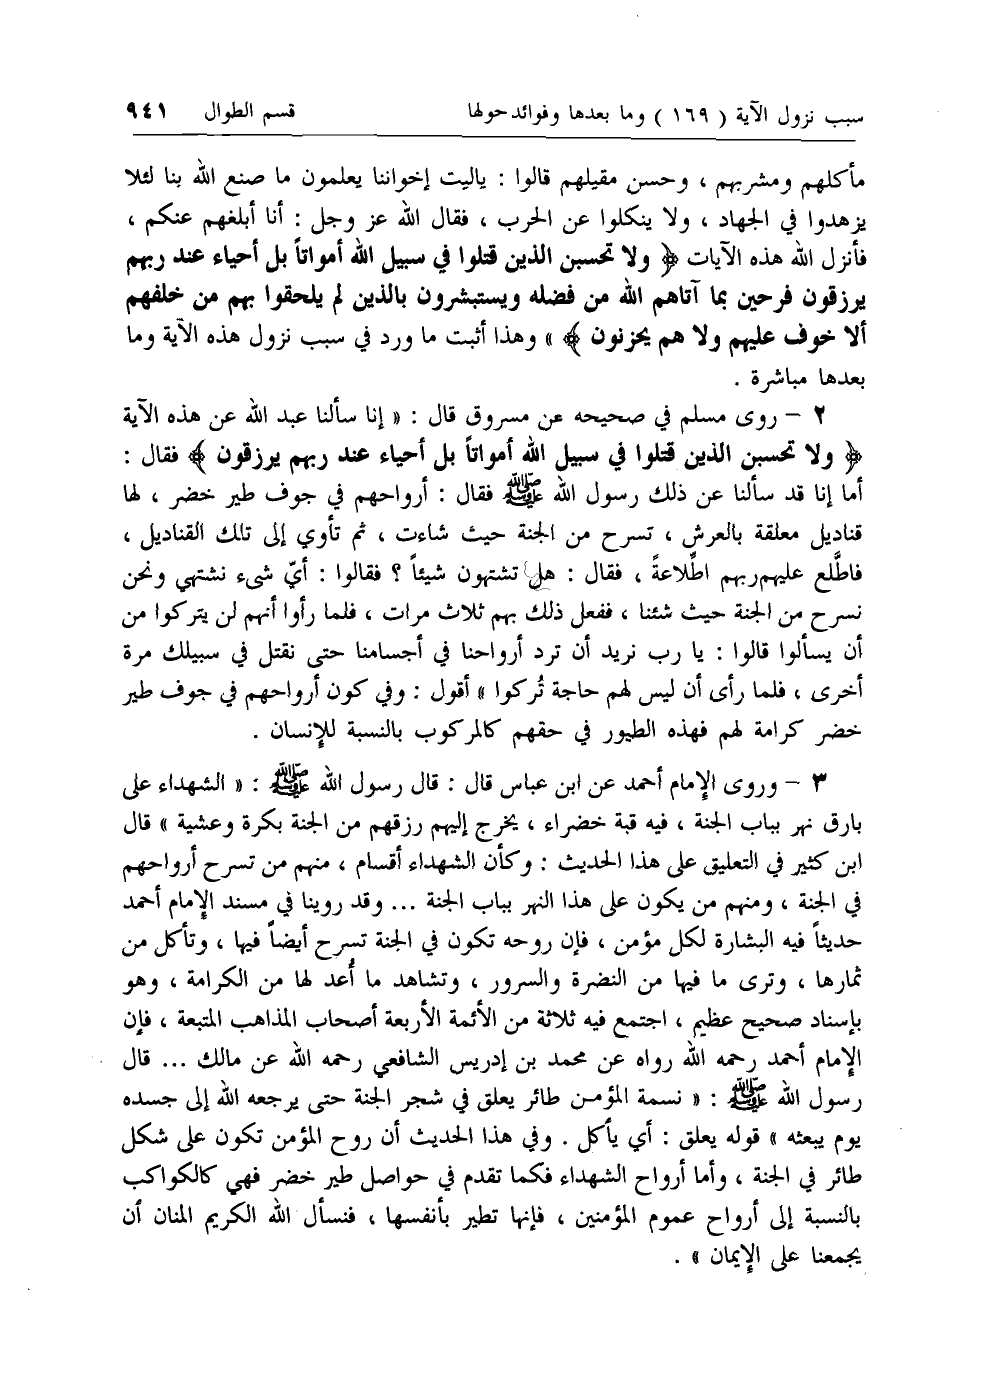 سبب نزول الآية ( ١٦٩ ) وما بعدها وفوائد حولها قسم الطوال ٩٤١
مأكلهم ومشربهم ، وحسن مقيلهم قالوا : ياليت إخواننا يعلمون ما صنع الله بنا لئلا
يزهدوا في الجهاد ، ولا ينكلوا عن الحرب ، فقال الله عز وجل : أنا أبلغهم عنكم ،
فأنزل الله هذه الآيات ﴿ ولا تحسبن الذين قتلوا في سبيل الله أمواتاً بل أحياء عند ربهم
يرزقون فرحين بما آتاهم الله من فضله ويستبشرون بالذين لم يلحقوا بهم من خلفهم
ألا خوف عليهم ولا هم يحزنون ﴾ » وهذا أثبت ما ورد في سبب نزول هذه الآية وما
بعدها مباشرة .
٢ – روى مسلم في صحيحه عن مسروق قال : « إنا سألنا عبد الله عن هذه الآية
﴿ ولا تحسبن الذين قتلوا في سبيل الله أمواتاً بل أحياء عند ربهم يرزقون ﴾ فقال :
أما إنا قد سألنا عن ذلك رسول الله ﷺ فقال : أرواحهم في جوف طير خضر ، لها
قناديل معلقة بالعرش ، تسرح من الجنة حيث شاءت ، ثم تأوي إلى تلك القناديل ،
فاطَّلع عليهم ربهم اطِّلاعةً ، فقال : هل تشتهون شيئاً ؟ فقالوا : أيّ شىء نشتهي ونحن
نسرح من الجنة حيث شئنا ، ففعل ذلك بهم ثلاث مرات ، فلما رأوا أنهم لن يتركوا من
أن يسألوا قالوا : يا رب نريد أن ترد أرواحنا في أجسامنا حتى نقتل في سبيلك مرة
أخرى ، فلما رأى أن ليس لهم حاجة تُركوا » أقول : وفي كون أرواحهم في جوف طير
خضر كرامة لهم فهذه الطيور في حقهم كالمركوب بالنسبة للإنسان .
٣ – وروى الإمام أحمد عن ابن عباس قال : قال رسول الله ﷺ : « الشهداء على
بارق نهر بباب الجنة ، فيه قبة خضراء ، يخرج إليهم رزقهم من الجنة بكرة وعشية » قال
ابن كثير في التعليق على هذا الحديث : وكأن الشهداء أقسام ، منهم من تسرح أرواحهم
في الجنة ، ومنهم من يكون على هذا النهر بباب الجنة ... وقد روينا في مسند الإمام أحمد
حديثاً فيه البشارة لكل مؤمن ، فإن روحه تكون في الجنة تسرح أيضاً فيها ، وتأكل من
ثمارها ، وترى ما فيها من النضرة والسرور ، وتشاهد ما أُعد لها من الكرامة ، وهو
بإسناد صحيح عظيم ، اجتمع فيه ثلاثة من الأئمة الأربعة أصحاب المذاهب المتبعة ، فإن
الإمام أحمد رحمه الله رواه عن محمد بن إدريس الشافعي رحمه الله عن مالك ... قال
رسول الله ﷺ : « نسمة المؤمن طائر يعلق في شجر الجنة حتى يرجعه الله إلى جسده
يوم يبعثه » قوله يعلق : أي يأكل . وفي هذا الحديث أن روح المؤمن تكون على شكل
طائر في الجنة ، وأما أرواح الشهداء فكما تقدم في حواصل طير خضر فهي كالكواكب
بالنسبة إلى أرواح عموم المؤمنين ، فإنها تطير بأنفسها ، فنسأل الله الكريم المنان أن
يجمعنا على الإيمان » .